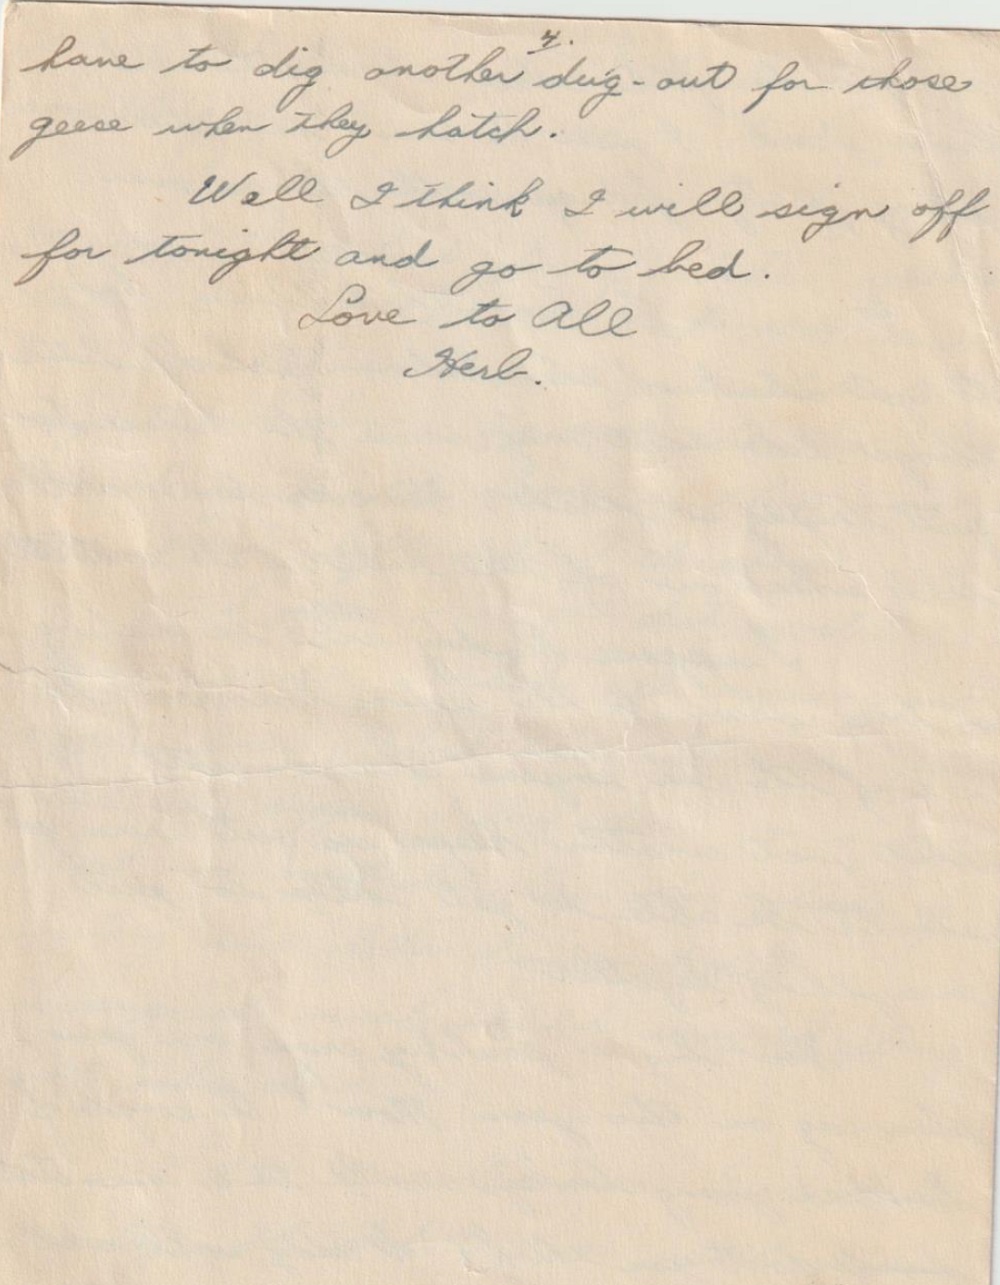 4.
have to dig another dug-out for those
geese when they hatch.
Well I think I will sign off
for tonight and go to bed.
Love to All
Herb.